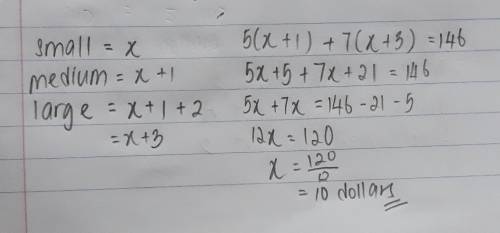 small = x
medium = x+1
large = x+1+2
= x+3
5(x+1) + 7(x+3) = 146
5x+5 + 7x+21 = 146
5x+7x = 146-21-5
12x = 120
x = 120/0
= 10 dollars